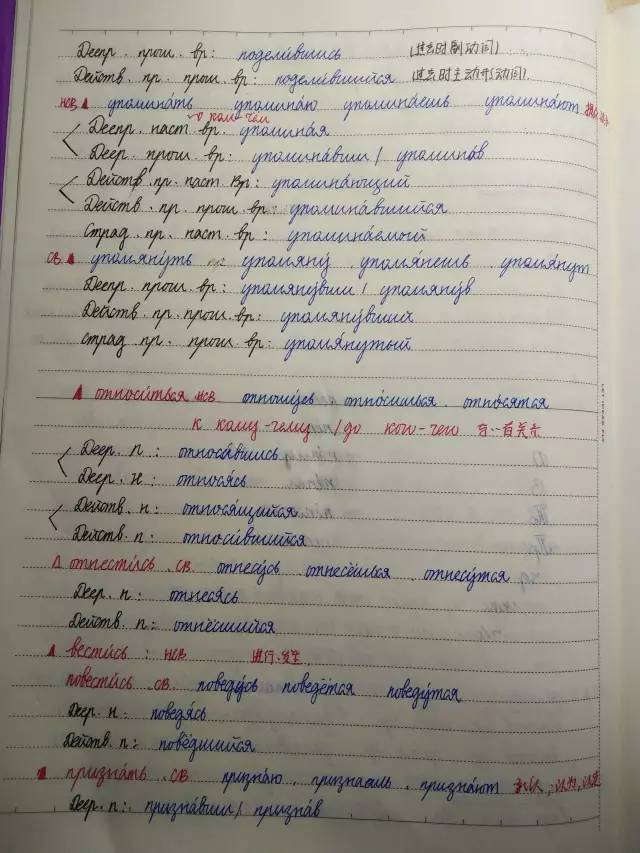 Деепр. прош. вр: подели́вшись (过去时副动词)
Действ. пр. прош. вр: подели́вшийся (过去时主动形动词)
НСВ упомина́ть упомина́ю упомина́ешь упомина́ют
о ком-чём
Деепр. наст. вр. упомина́я
Деер. прош. вр: упомина́вши / упомина́в
Действ пр. наст вр: упомина́ющий
Действ. пр. прош. вр: упомина́вшийся
Страд. пр. наст. вр: упомина́емый
СВ упомяну́ть упомяну́ упомя́нешь упомя́нут
Деепр. прош. вр: упомяну́вши / упомяну́в
Действ. пр. прош. вр: упомяну́вший
страд пр. прош. вр: упомя́нутый
относи́ться НСВ отношу́сь отно́сишься. отно́сятся
к кому-чему / до кого-чего 与...有关系
Деер. п: относи́вшись
Деер. н: относя́сь
Действ. н: относя́щийся
Действ. п: относи́вшийся
отнести́сь. СВ. отнесу́сь отнесёшься. отнесу́тся
Деер. п: отнеся́сь
Действ. п: отнёсшийся
вести́сь: НСВ 进行.发生.
повести́сь СВ. поведу́сь поведётся поведу́тся
Деер. н: поведя́сь
Действ. п: пове́дшийся
призна́ть. СВ призна́ю. призна́ешь. призна́ют 承认,认为,认定
Деер. п: призна́вши / призна́в